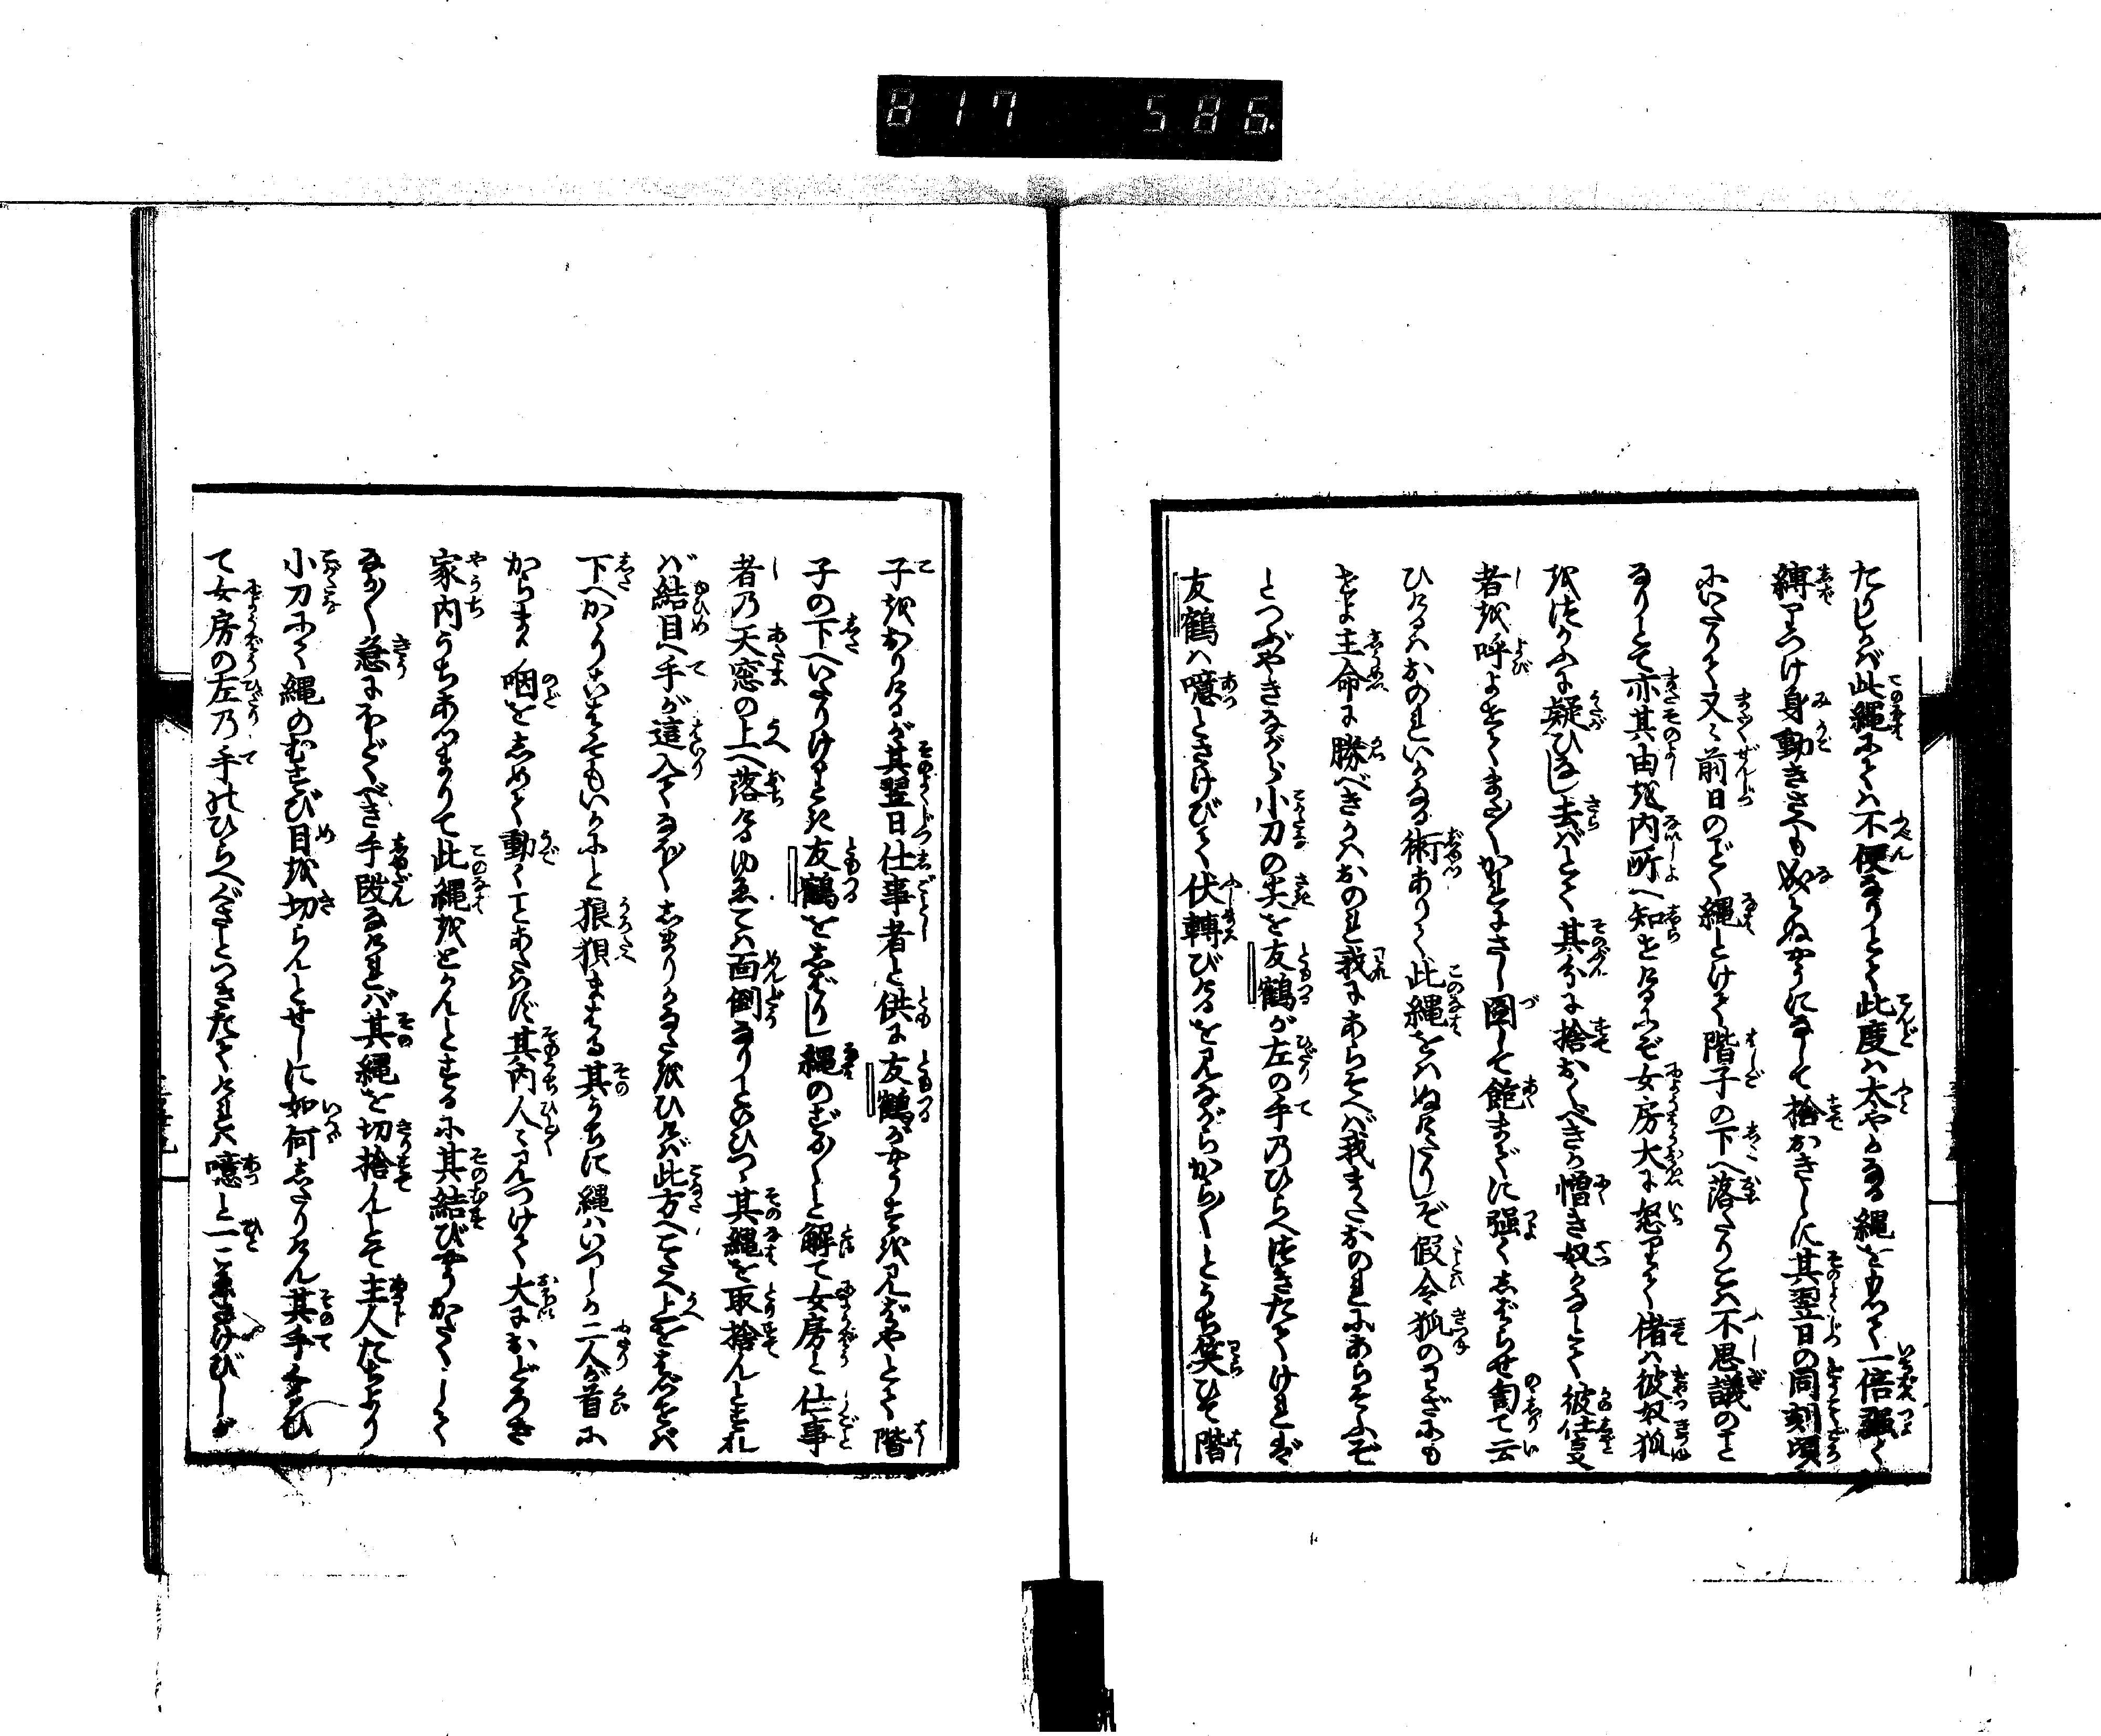 817 586.
たりしが此縄にては不便なりとて此度は太やかなる縄をもつて一倍強く
縛りつけ身動きさへもならぬやうになして捨おきしに其翌日の同刻頃
にいたりて又〻前日のごとく縄とけて階子の下へ落たりこは不思議のこと
なりとて亦其由を内所へ知せけるにぞ女房大に怒りて偖は彼奴狐
をつかふに疑ひなし去ばとて其分に捨おくべきか憎き奴かなとて彼仕事
者を呼よせてまだ〳〵かれにさし図して飽までに強くしばらせ罵て云
ひけるはおのれいかなる術ありて此縄をはぬけたりしぞ假令狐のわざにも
せよ主命に勝べきかはおのれ我にあらそへば我またおのれにあらそふぞ
とつぶやきながら小刀の尖を友鶴が左の手乃ひらへつきたてければ
友鶴は噫とさけびて伏轉びけるを見ながらから〳〵とうち笑ひて階
子をおりけるが其翌日仕事者と供に友鶴がやうすを見ばやとて階
子の下へいたりけるとき友鶴をしばりし縄のずる〳〵と解て女房と仕事
者乃天窓の上へ落けるゆゑこは面倒なりといひつゝ其縄を取捨んとすれ
ば結目へ手が這入てなほ〳〵しまりかなたをひけば此方へこたへ上をはらへば
下へかゝりこはそもいかにと狼狽まはる其うちに縄はいつしか二人が首に
からまり咽をしめて動くことあたはず其内人〻見つけて大におどろき
家内うちあつまりて此縄をとかんとするに其結びやうかたくして
なか〳〵急にほどくべき手段なければ其縄を切捨んとて主人たちより
小刀にて縄のむすび目を切らんとせしに如何したりけん其手くるひ
て女房の左乃手のひらへぐさとつきたてければ噫と一こゑさけびしが